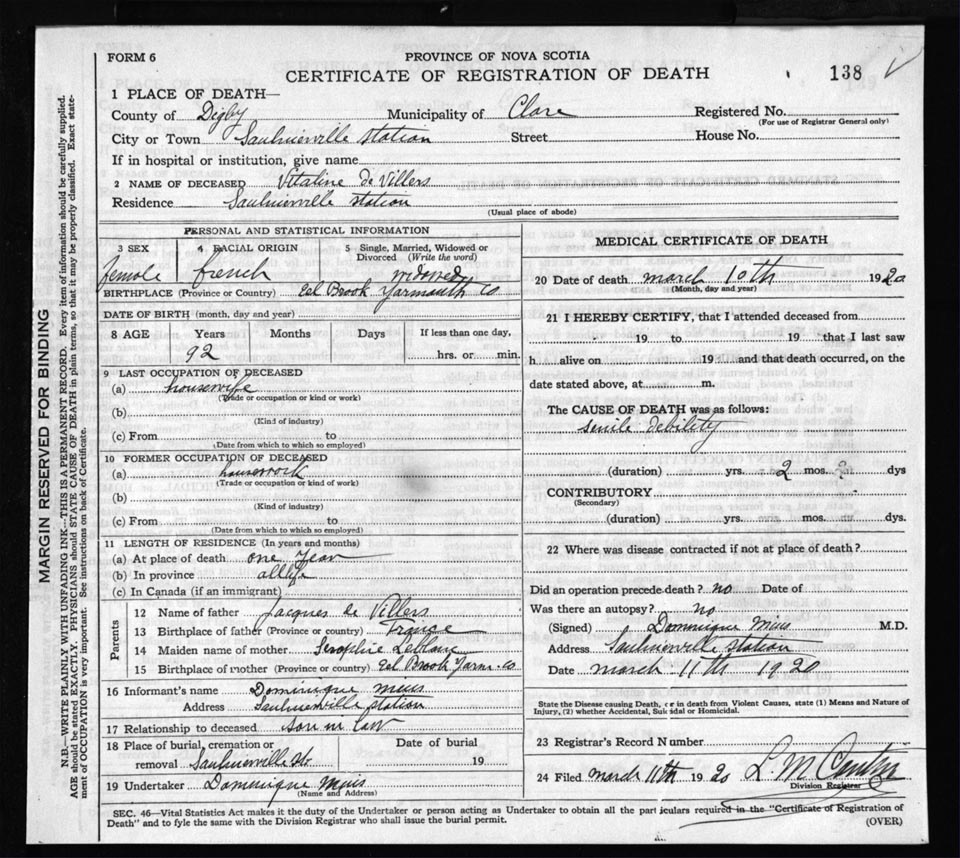 FORM 6
PROVINCE OF NOVA SCOTIA
CERTIFICATE OF REGISTRATION OF DEATH
138
1 PLACE OF DEATH—
County of Digby Municipality of Clare Registered No.
(For use of Registrar General only)
City or Town Saulnierville Station Street House No.
If in hospital or institution, give name
2 NAME OF DECEASED Vitaline de Villers
Residence Saulnierville Station
(Usual place of abode)
PERSONAL AND STATISTICAL INFORMATION
3 SEX 4 RACIAL ORIGIN 5 Single, Married, Widowed or
Divorced (Write the word)
female french widowed
BIRTHPLACE (Province or Country) Eel Brook Yarmouth Co
DATE OF BIRTH (month, day and year)
8 AGE Years Months Days If less than one day,
92 hrs. or min.
9 LAST OCCUPATION OF DECEASED
(a) housewife
(Trade or occupation or kind or work)
(b)
(Kind of industry)
(c) From to
(Date from which to which so employed)
10 FORMER OCCUPATION OF DECEASED
(a) housework
(Trade or occupation or kind of work)
(b)
(Kind of industry)
(c) From to
(Date from which to which so employed)
11 LENGTH OF RESIDENCE (In years and months)
(a) At place of death one year
(b) In province all life
(c) In Canada (if an immigrant)
Parents
12 Name of father Jacques de Villers
13 Birthplace of father (Province or country) France
14 Maiden name of mother Seraphie Leblanc
15 Birthplace of mother (Province or country) Eel Brook Yarm. Co
16 Informant's name Dominique Muis
Address Saulnierville Station
17 Relationship to deceased son in law
18 Place of burial, cremation or Date of burial
removal Saulnierville St. 19
19 Undertaker Dominique Muis
(Name and Address)
MEDICAL CERTIFICATE OF DEATH
20 Date of death march 10th 1920
(Month, day and year)
21 I HEREBY CERTIFY, that I attended deceased from
19 to 19 that I last saw
h alive on 19 and that death occurred, on the
date stated above, at m.
The CAUSE OF DEATH was as follows:
senile debility
(duration) yrs. 2 mos. dys
CONTRIBUTORY
(Secondary)
(duration) yrs. mos. dys.
22 Where was disease contracted if not at place of death?
Did an operation precede death? no Date of
Was there an autopsy? no
(Signed) Dominique Muis M.D.
Address Saulnierville Station
Date march 11th 1920
State the Disease causing Death, or in death from Violent Causes, state (1) Means and Nature of
Injury, (2) whether Accidental, Suicidal or Homicidal.
23 Registrar's Record Number
24 Filed march 11th 1920 L M
Division Registrar
SEC. 46—Vital Statistics Act makes it the duty of the Undertaker or person acting as Undertaker to obtain all the particulars required in the "Certificate of Registration of
Death" and to fyle the same with the Division Registrar who shall issue the burial permit.
(OVER)
MARGIN RESERVED FOR BINDING
N.B.—WRITE PLAINLY WITH UNFADING INK—THIS IS A PERMANENT RECORD. Every item of information should be carefully supplied.
AGE should be stated EXACTLY. PHYSICIANS should STATE CAUSE OF DEATH in plain terms, so that it may be properly classified. Exact state-
ment of OCCUPATION is very important. See instructions on back of Certificate.